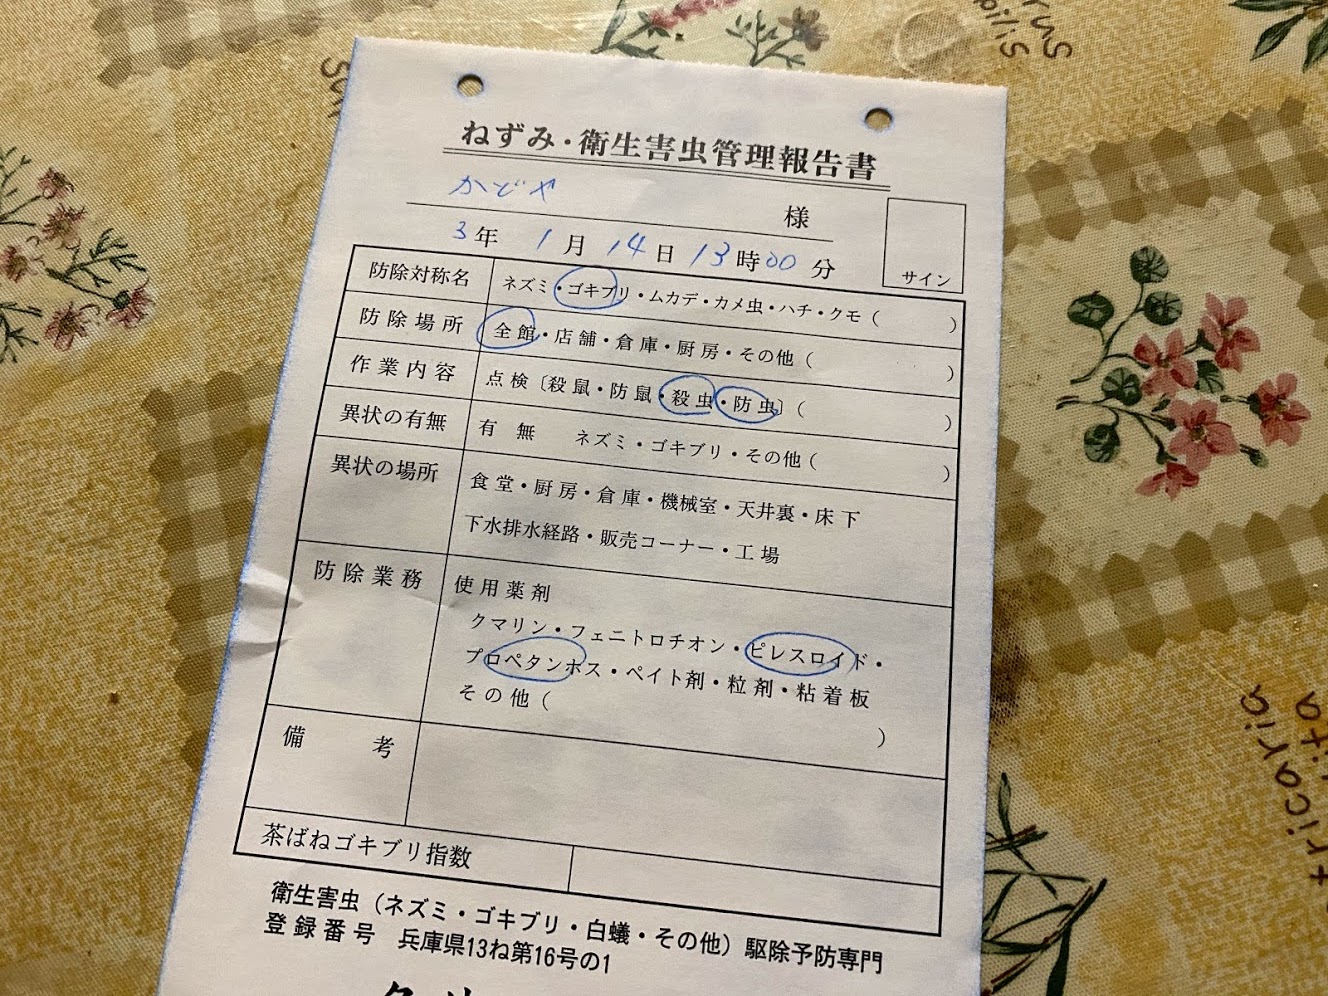 ねずみ・衛生害虫管理報告書
かどや 様
3年 1月 14日 13時00分
サイン
防除対称名 ネズミ・ゴキブリ・ムカデ・カメ虫・ハチ・クモ( )
防除場所 全館・店舗・倉庫・厨房・その他( )
作業内容 点検〔殺鼠・防鼠・殺虫・防虫〕( )
異状の有無 有 無 ネズミ・ゴキブリ・その他( )
異状の場所 食堂・厨房・倉庫・機械室・天井裏・床下
下水排水経路・販売コーナー・工場
防除業務 使用薬剤
クマリン・フェニトロチオン・ピレスロイド・
プロペタンホス・ベイト剤・粒剤・粘着板
その他( )
備考
茶ばねゴキブリ指数
衛生害虫(ネズミ・ゴキブリ・白蟻・その他)駆除予防専門
登録番号 兵庫県13ね第16号の1